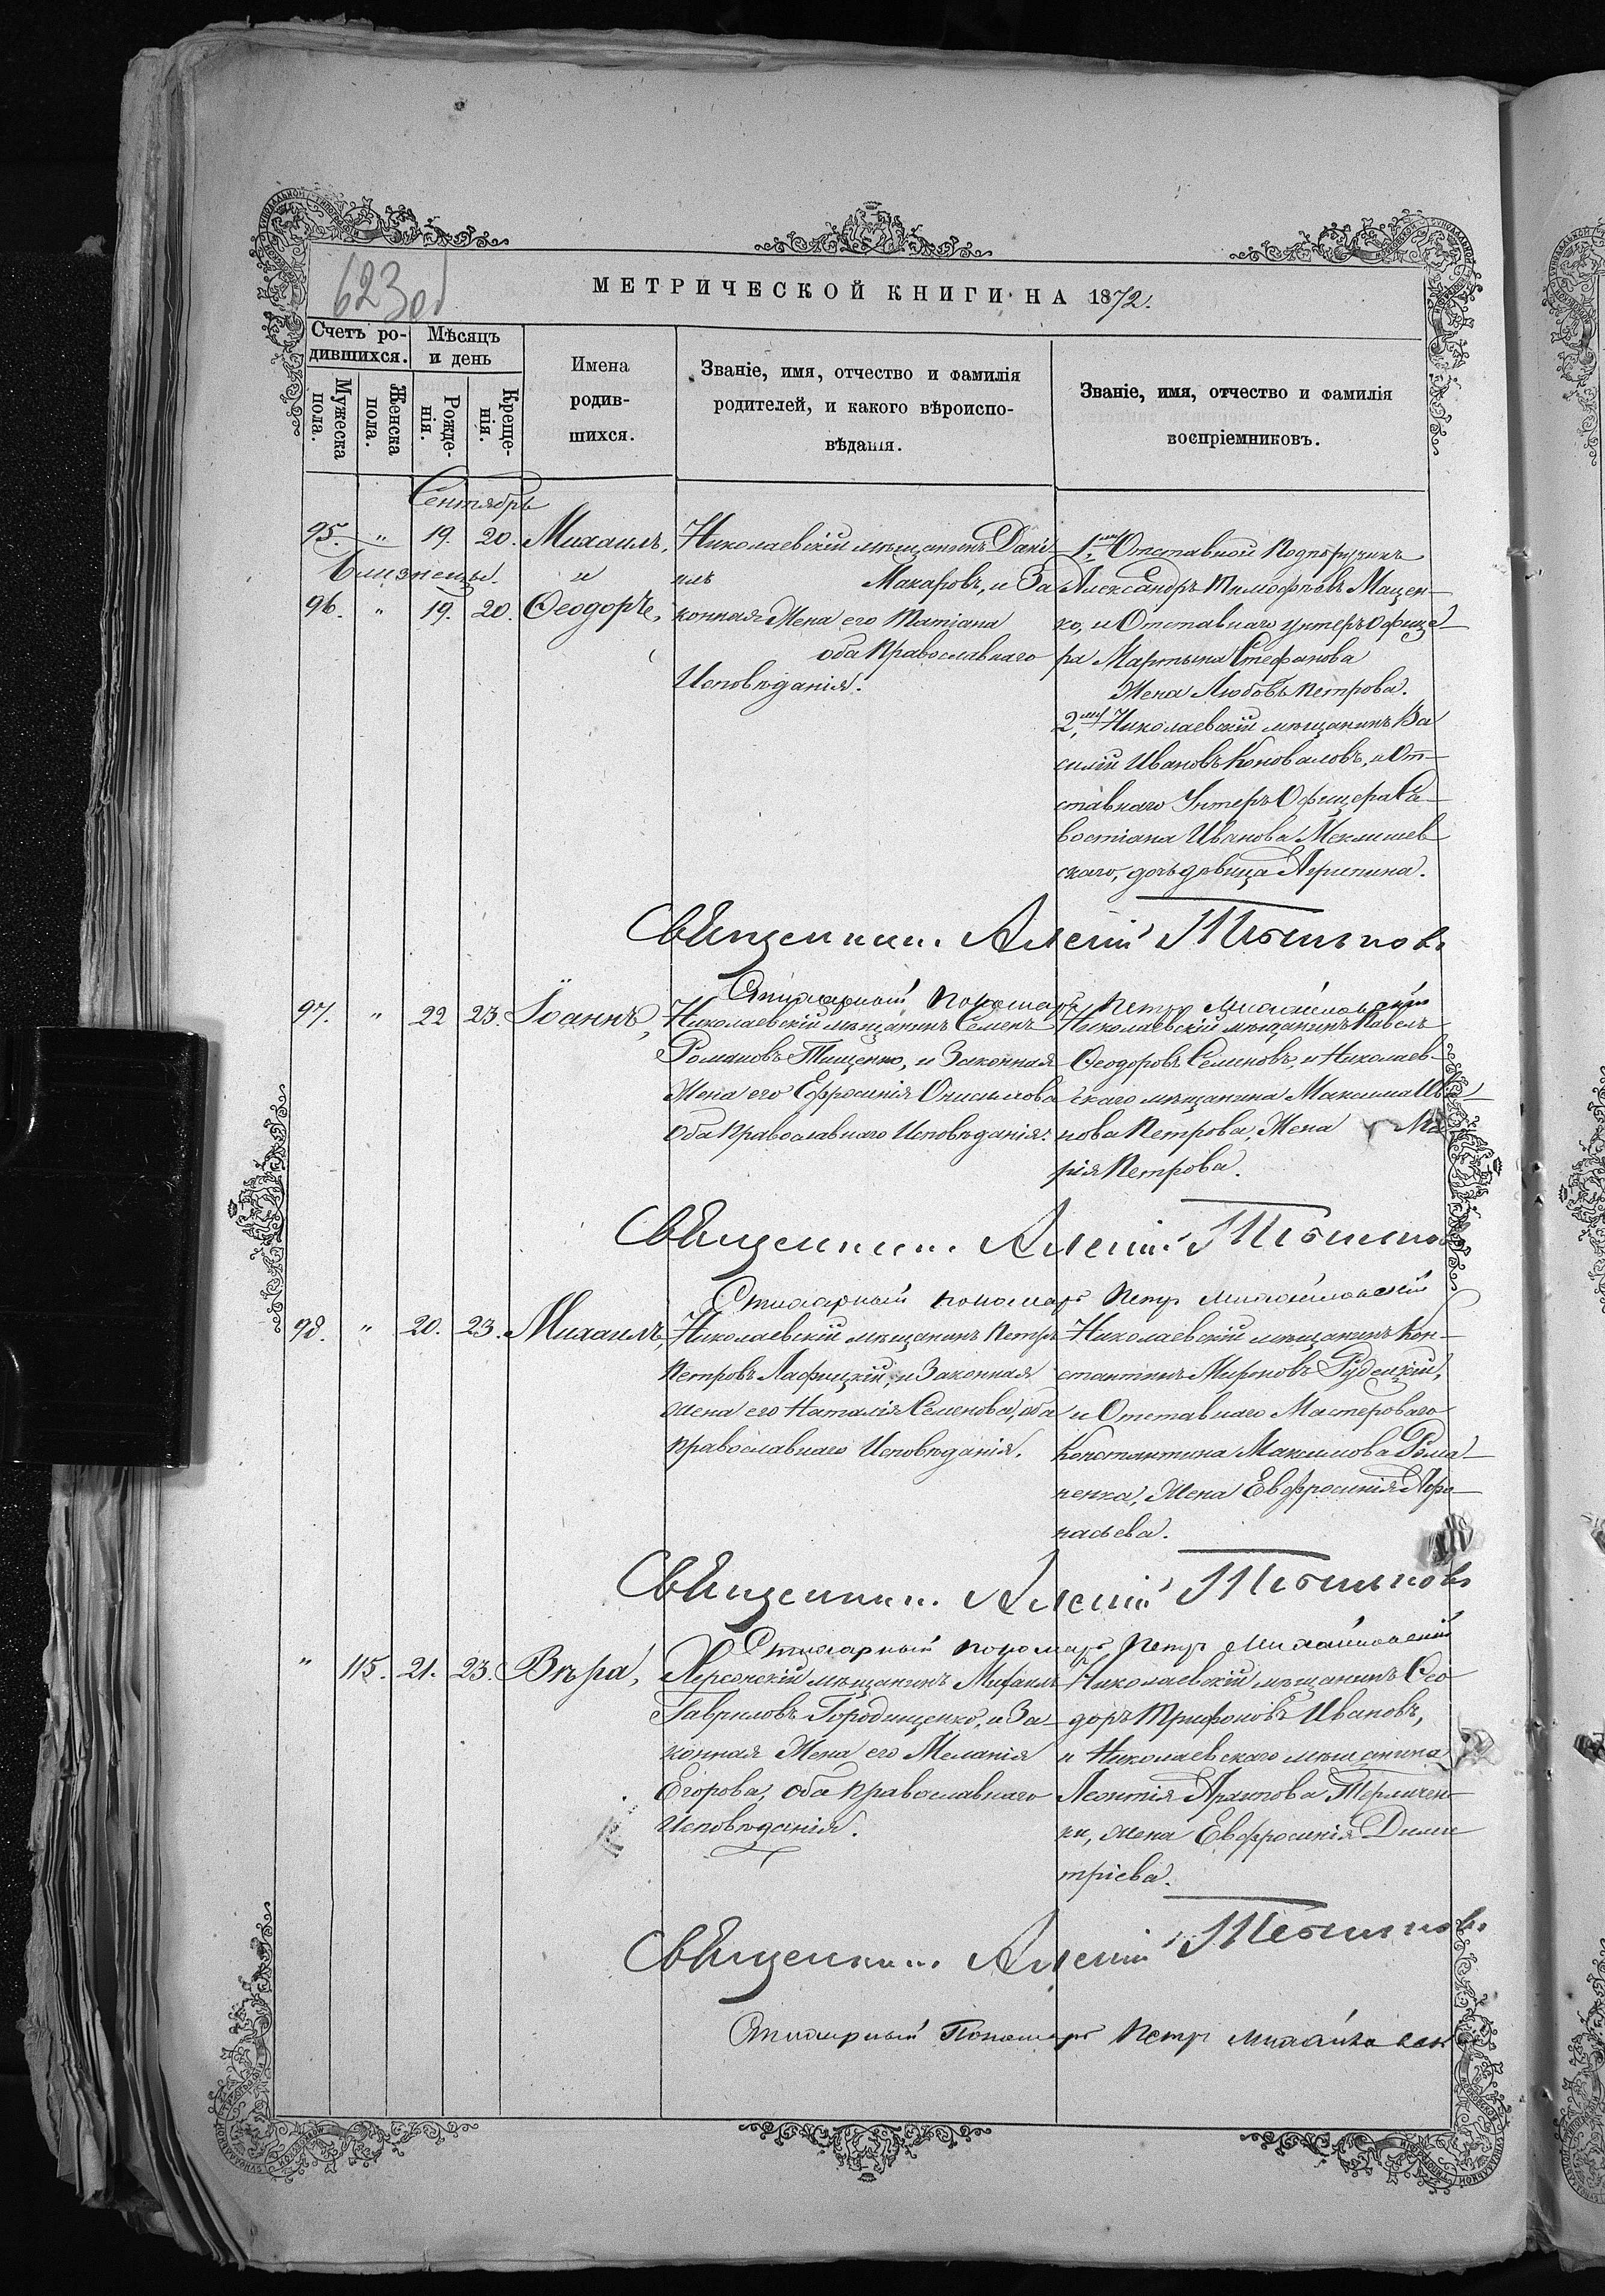 623 об
МЕТРИЧЕСКОЙ КНИГИ НА 1872.
Счетъ ро-
дившихся.
Мѣсяцъ
и день
Мужеска
пола.
Женска
пола.
Рожде-
нія.
Креще-
нія.
Имена
родив-
шихся.
Званіе, имя, отчество и фамилія
родителей, и какого вѣроиспо-
вѣданія.
Званіе, имя, отчество и фамилія
воспріемниковъ.
Сентябрь
95. " 19. 20. Михаилъ,
близнецы. и
96. " 19. 20. Ѳеодоръ,
Николаевскій мѣщанинъ Дані-
илъ Макаровъ, и За
конная Жена его Татіана
оба Православнаго
Исповѣданія.
1, Отставной Подпоручикъ
Александръ Тимофѣевъ Мацен-
ко, и Отставнаго унтеръ офице-
ра Мартына Стефанова
Жена Любовь Петрова.
2, Николаевскій мѣщанинъ Ва
силій Ивановъ Коноваловъ, и От-
ставнаго Унтеръ Офицера Са-
востіана Иванова
скаго, дочь дѣвица Агрипина.
Священникъ Алексій
Стихарный пономарь Петръ Михайловскій
97. " 22 23. Іоаннъ,
Николаевскій мѣщанинъ Семенъ
Романовъ Тищенко, и Законная
Жена его Ефросинія Онисимова
Оба Православнаго Исповѣданія.
Николаевскій мѣщанинъ Павелъ
Ѳеодоровъ Семеновъ, и Николаев-
скаго мѣщанина Максима Ива-
нова Петрова, Жена Ма
рія Петрова.
Священникъ Алексій
Стихарный пономарь Петръ Михайловскій
98. " 20. 23. Михаилъ,
Николаевскій мѣщанинъ Петръ
Петровъ Лафицкій, и Законная
Жена его Наталія Семенова, оба
Православнаго Исповѣданія.
Николаевскій мѣщанинъ Кон-
стантинъ Мироновъ Рудецкій,
и Отставнаго Мастероваго
Константина Максимова Рома-
ненка, Жена Евфросинія Афо-
насьева.
Священникъ Алексій
Стихарный пономарь Петръ Михайловскій
" 115. 21. 23. Вѣра,
Херсонскій мѣщанинъ Михаилъ
Гавриловъ Городищенко, и За-
конная Жена его Меланія
Егорова, оба Православнаго
Исповѣданія.
Николаевскій мѣщанинъ Ѳео
доръ Трифоновъ Ивановъ,
и Николаевскаго мѣщанина
Леонтія
ки, жена Евфросинія Дими
тріева.
Священникъ Алексій
Стихарный Пономарь Петръ Михайловскій